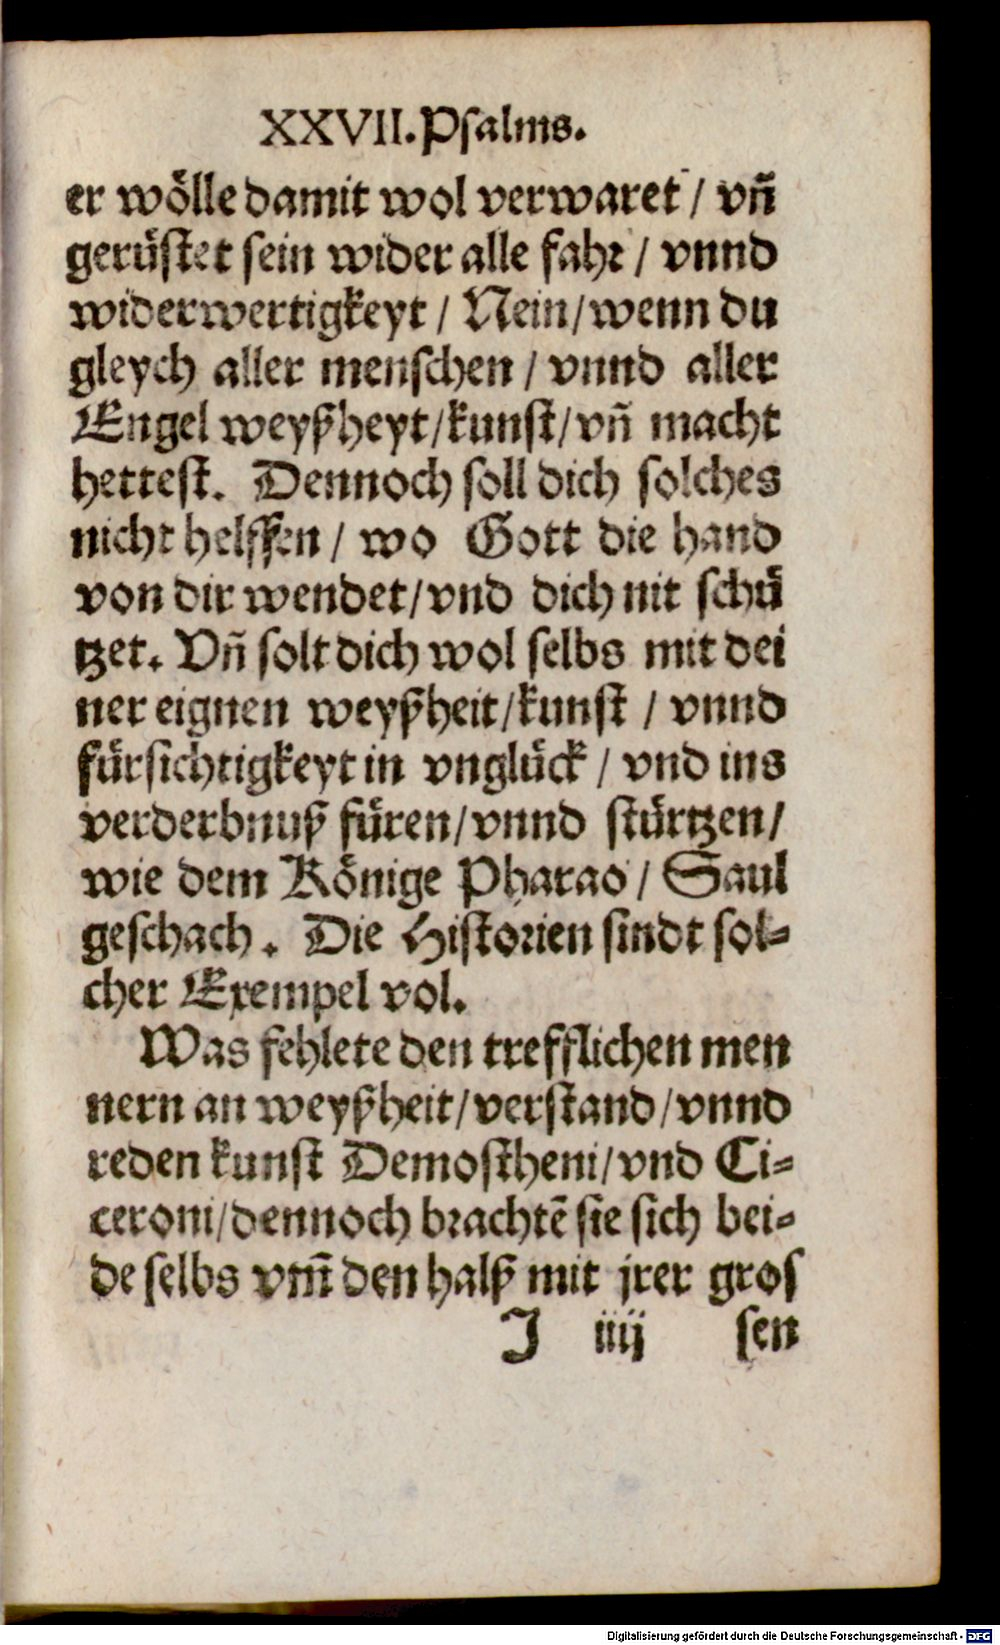 XXVII. Psalms.
er wölle damit wol verwaret / vñ
gerüstet sein wider alle fahr / vnnd
widerwertigkeyt / Nein/wenn du
gleych aller menschen / vnnd aller
Engel weyßheyt/kunst/vñ macht
hettest. Dennoch soll dich solches
nicht helffen / wo Gott die hand
von dir wendet/vnd dich nit schü
tzet. Vñ solt dich wol selbs mit dei
ner eignen weyßheit/kunst / vnnd
fürsichtigkeyt in vnglück / vnd ins
verderbnuß füren/vnnd stürtzen/
wie dem Könige Pharao / Saul
geschach. Die Historien sindt sol-
cher Exempel vol.
Was fehlete den trefflichen men
nern an weyßheit/verstand/vnnd
reden kunst Demostheni/vnd Ci-
ceroni/dennoch brachtē sie sich bei-
de selbs vm̃ den halß mit jrer gros
J iiij sen
Digitalisierung gefördert durch die Deutsche Forschungsgemeinschaft - DFG